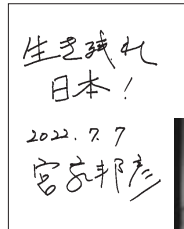 生き残れ
日本！
2022.7.7
宮家邦彦